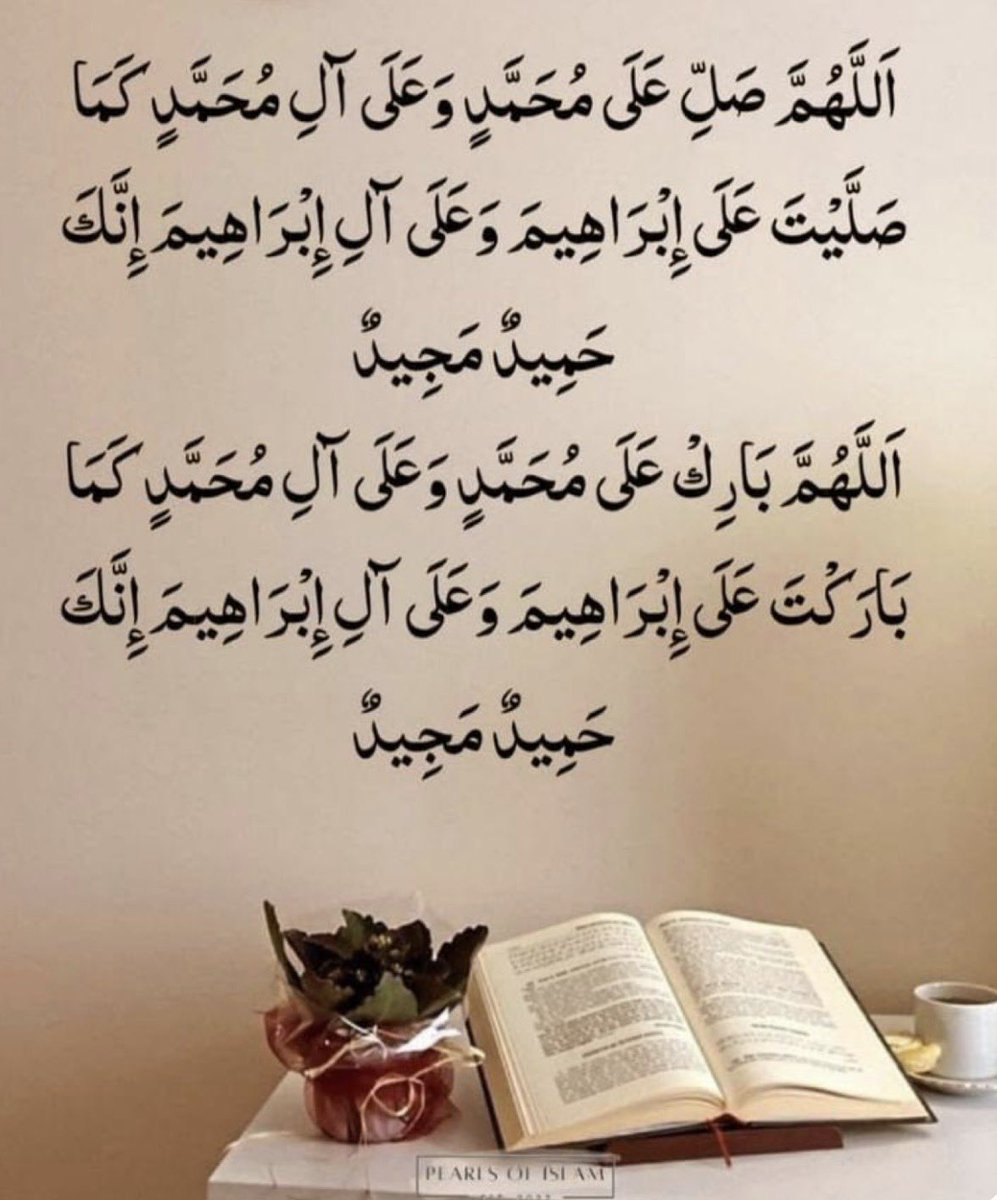 اَللَّهُمَّ صَلِّ عَلَى مُحَمَّدٍ وَعَلَى آلِ مُحَمَّدٍ كَمَا
صَلَّيْتَ عَلَى إِبْرَاهِيمَ وَعَلَى آلِ إِبْرَاهِيمَ إِنَّكَ
حَمِيدٌ مَجِيدٌ
اَللَّهُمَّ بَارِكْ عَلَى مُحَمَّدٍ وَعَلَى آلِ مُحَمَّدٍ كَمَا
بَارَكْتَ عَلَى إِبْرَاهِيمَ وَعَلَى آلِ إِبْرَاهِيمَ إِنَّكَ
حَمِيدٌ مَجِيدٌ
PEARLS OF ISLAM